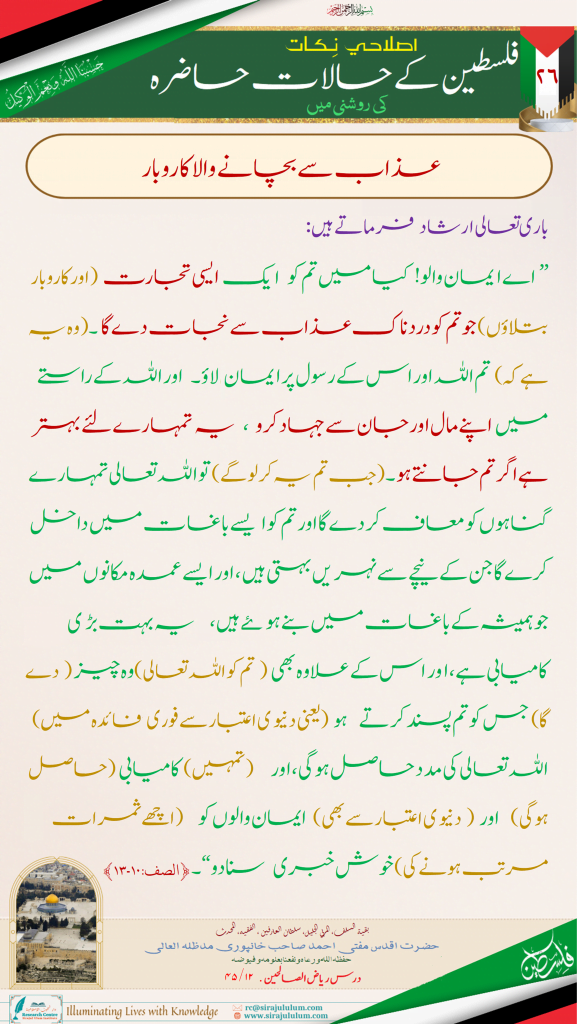 بسم اللہ الرحمن الرحیم
اصلاحی نِکات
فلسطین کے حالات حاضرہ
کی روشنی میں
۲۶
حَسْبُنَا اللّٰهُ وَنِعْمَ الْوَكِيْل
عذاب سے بچانے والا کاروبار
باری تعالی ارشاد فرماتے ہیں:
”اے ایمان والو! کیا میں تم کو ایک ایسی تجارت (اور کاروبار
بتلاؤں) جو تم کو دردناک عذاب سے نجات دے گا۔ (وہ یہ
ہے کہ) تم اللہ اور اس کے رسول پر ایمان لاؤ۔ اور اللہ کے راستے
میں اپنے مال اور جان سے جہاد کرو ، یہ تمہارے لئے بہتر
ہے اگر تم جانتے ہو۔ (جب تم یہ کر لو گے) تو اللہ تعالی تمہارے
گناہوں کو معاف کر دے گا اور تم کو ایسے باغات میں داخل
کرے گا جن کے نیچے سے نہریں بہتی ہیں، اور ایسے عمدہ مکانوں میں
جو ہمیشہ کے باغات میں بنے ہوئے ہیں، یہ بہت بڑی
کامیابی ہے، اور اس کے علاوہ بھی ( تم کو اللہ تعالی) وہ چیز ( دے
گا) جس کو تم پسند کرتے ہو (یعنی دنیوی اعتبار سے فوری فائدہ میں)
اللہ تعالی کی مدد حاصل ہو گی، اور (تمہیں) کامیابی (حاصل
ہوگی) اور ( دنیوی اعتبار سے بھی) ایمان والوں کو (اچھے ثمرات
مرتب ہونے کی) خوش خبری سنا دو“۔ ﴿الصف: ۱۰-۱۳﴾
حضرت اقدس مفتی احمد صاحب خانپوری مدظلہ العالی
حفظہ اللہ ورعاہ ونفعنا بعلومہ وفیوضہ
درس ریاض الصالحین، ۴۵/۱۲
فلسطین
Research Center
Illuminating Lives with Knowledge
rc@sirajululum.com
www.sirajululum.com